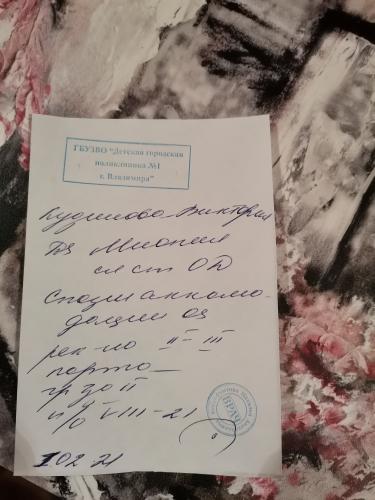 ГБУЗВО "Детская городская
поликлиника №1
г. Владимира"
Виктория
Ds Миопия
сл ст OD
Спазм аккомо-
дации OS
рек-но II - III
парта
гр зо II
VIII - 21
ВРАЧ
02 21